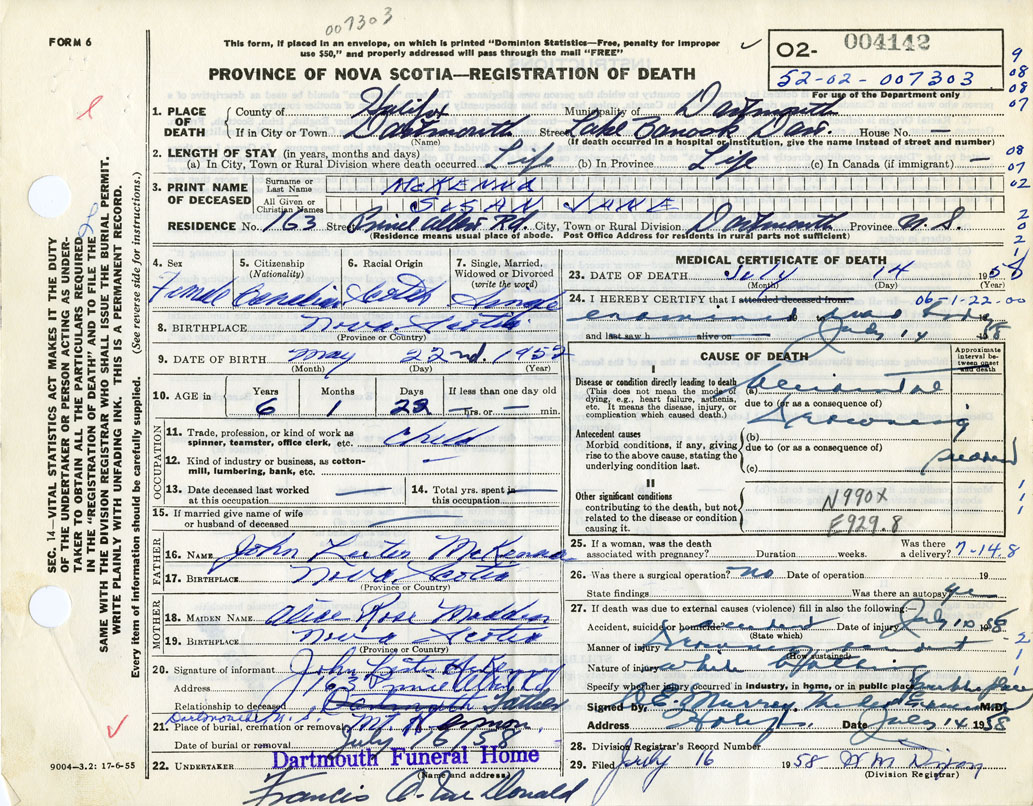 007303
FORM 6
This form, if placed in an envelope, on which is printed "Dominion Statistics—Free, penalty for improper
use $50," and properly addressed will pass through the mail "FREE"
PROVINCE OF NOVA SCOTIA—REGISTRATION OF DEATH
O2- 004142
52-02-007303
For use of the Department only
9 08 08 07
08 07 02
SEC. 14—VITAL STATISTICS ACT MAKES IT THE DUTY
OF THE UNDERTAKER OR PERSON ACTING AS UNDER-
TAKER TO OBTAIN ALL THE PARTICULARS REQUIRED
IN THE "REGISTRATION OF DEATH" AND TO FILE THE
SAME WITH THE DIVISION REGISTRAR WHO SHALL ISSUE THE BURIAL PERMIT.
WRITE PLAINLY WITH UNFADING INK. THIS IS A PERMANENT RECORD.
Every item of information should be carefully supplied. (See reverse side for instructions.)
1. PLACE OF DEATH
County of Halifax Municipality of Dartmouth
If in City or Town Dartmouth Street Lake Banook Dart. House No. —
(Name) (If death occurred in a hospital or institution, give the name instead of street and number)
2. LENGTH OF STAY (in years, months and days)
(a) In City, Town or Rural Division where death occurred Life (b) In Province Life (c) In Canada (if immigrant) —
3. PRINT NAME OF DECEASED
Surname or Last Name McKENNA
All Given or Christian Names SUSAN JANE
RESIDENCE No. 163 Street Prince Albert Rd. City, Town or Rural Division Dartmouth Province N.S.
(Residence means usual place of abode. Post Office Address for residents in rural parts not sufficient)
4. Sex Female
5. Citizenship (Nationality) Canadian
6. Racial Origin Scotch
7. Single, Married, Widowed or Divorced (write the word) Single
8. BIRTHPLACE Nova Scotia
(Province or Country)
9. DATE OF BIRTH May 22nd. 1952
(Month) (Day) (Year)
10. AGE in Years Months Days If less than one day old
6 1 22 — hrs. or — min.
OCCUPATION
11. Trade, profession, or kind of work as spinner, teamster, office clerk, etc. child
12. Kind of industry or business, as cotton-mill, lumbering, bank, etc. —
13. Date deceased last worked at this occupation —
14. Total yrs. spent in this occupation —
15. If married give name of wife or husband of deceased —
FATHER
16. NAME John Lester McKenna
17. BIRTHPLACE Nova Scotia
(Province or Country)
MOTHER
18. MAIDEN NAME Alice Rose Madden
19. BIRTHPLACE Nova Scotia
(Province or Country)
20. Signature of informant John Lester McKenna
Address 163 Prince Albert Rd
Relationship to deceased Dartmouth Father
Dartmouth N.S.
21. Place of burial, cremation or removal Mt. Hermon
Date of burial or removal July 16/58
22. UNDERTAKER Dartmouth Funeral Home
(Name and address)
9004—3.2: 17-6-55
MEDICAL CERTIFICATE OF DEATH
23. DATE OF DEATH July 14 1958
(Month) (Day) (Year)
24. I HEREBY CERTIFY that I attended deceased from 06-1-22-00
examined dead body
and last saw h alive on July 14 58
CAUSE OF DEATH
Approximate interval between onset and death
I
Disease or condition directly leading to death
(This does not mean the mode of dying, e.g., heart failure, asthenia, etc. It means the disease, injury, or complication which caused death.)
(a) Accidental
due to (or as a consequence of)
Drowning
Antecedent causes
Morbid conditions, if any, giving rise to the above cause, stating the underlying condition last.
(b)
due to (or as a consequence of)
(c)
II
Other significant conditions contributing to the death, but not related to the disease or condition causing it.
N990X
E929.8
25. If a woman, was the death associated with pregnancy? Duration weeks. Was there a delivery? 7-14.8
26. Was there a surgical operation? no Date of operation 19
State findings Was there an autopsy yes
27. If death was due to external causes (violence) fill in also the following:—
Accident, suicide or homicide? accident Date of injury July 1958
(State which)
Manner of injury Drowning
(How sustained)
Nature of injury while bathing
Specify whether injury occurred in industry, in home, or in public place public place
Signed by Murray M.D.
Address Date July 14 1958
28. Division Registrar's Record Number
29. Filed July 16 1958
(Division Registrar)